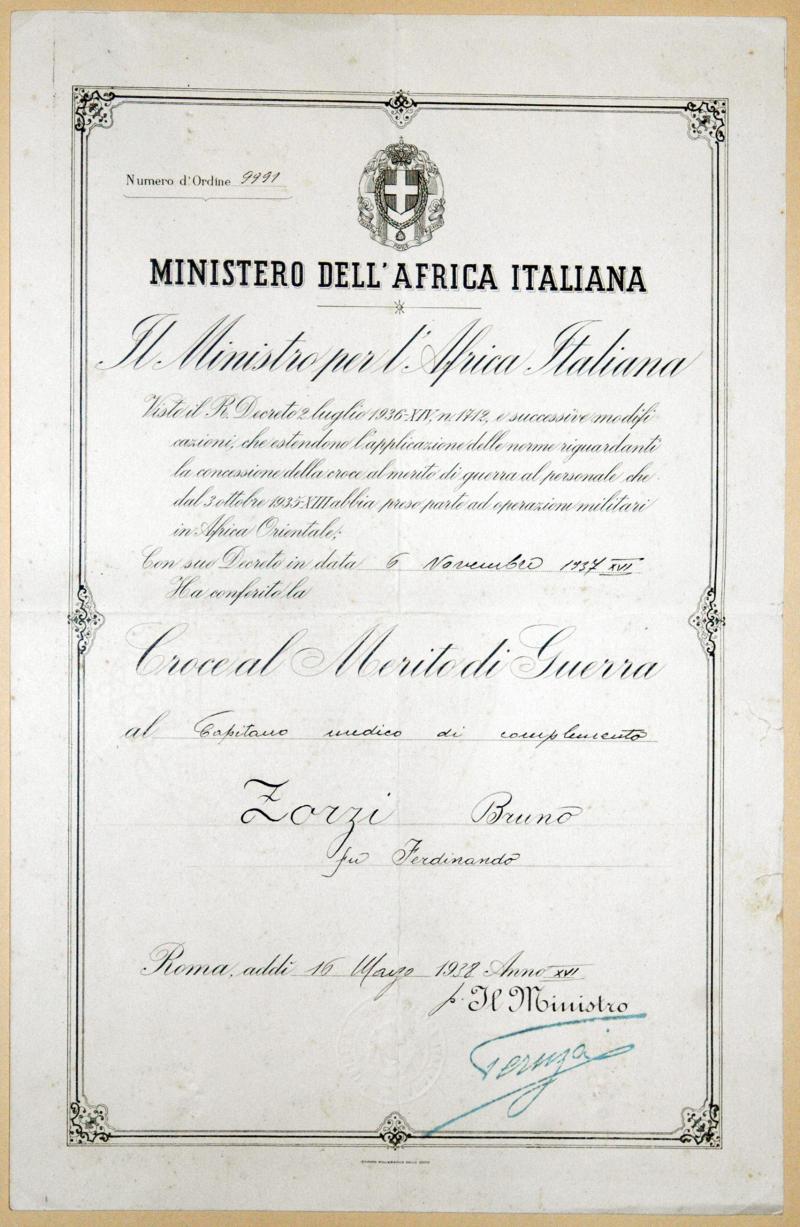 Numero d'Ordine 9991
MINISTERO DELL'AFRICA ITALIANA
Il Ministro per l'Africa Italiana
Visto il R. Decreto 2 luglio 1936-XIV, n. 1712, e successive modifi
cazioni, che estendono l'applicazione delle norme riguardanti
la concessione della croce al merito di guerra al personale che
dal 3 ottobre 1935-XIII abbia preso parte ad operazioni militari
in Africa Orientale;
Con suo Decreto in data 6 Novembre 1937 XVI
Ha conferito la
Croce al Merito di Guerra
al Capitano medico di complemento
Zorzi Bruno
fu Ferdinando
Roma, addì 16 Marzo 1938 Anno XVI
p. Il Ministro
Teruzzi